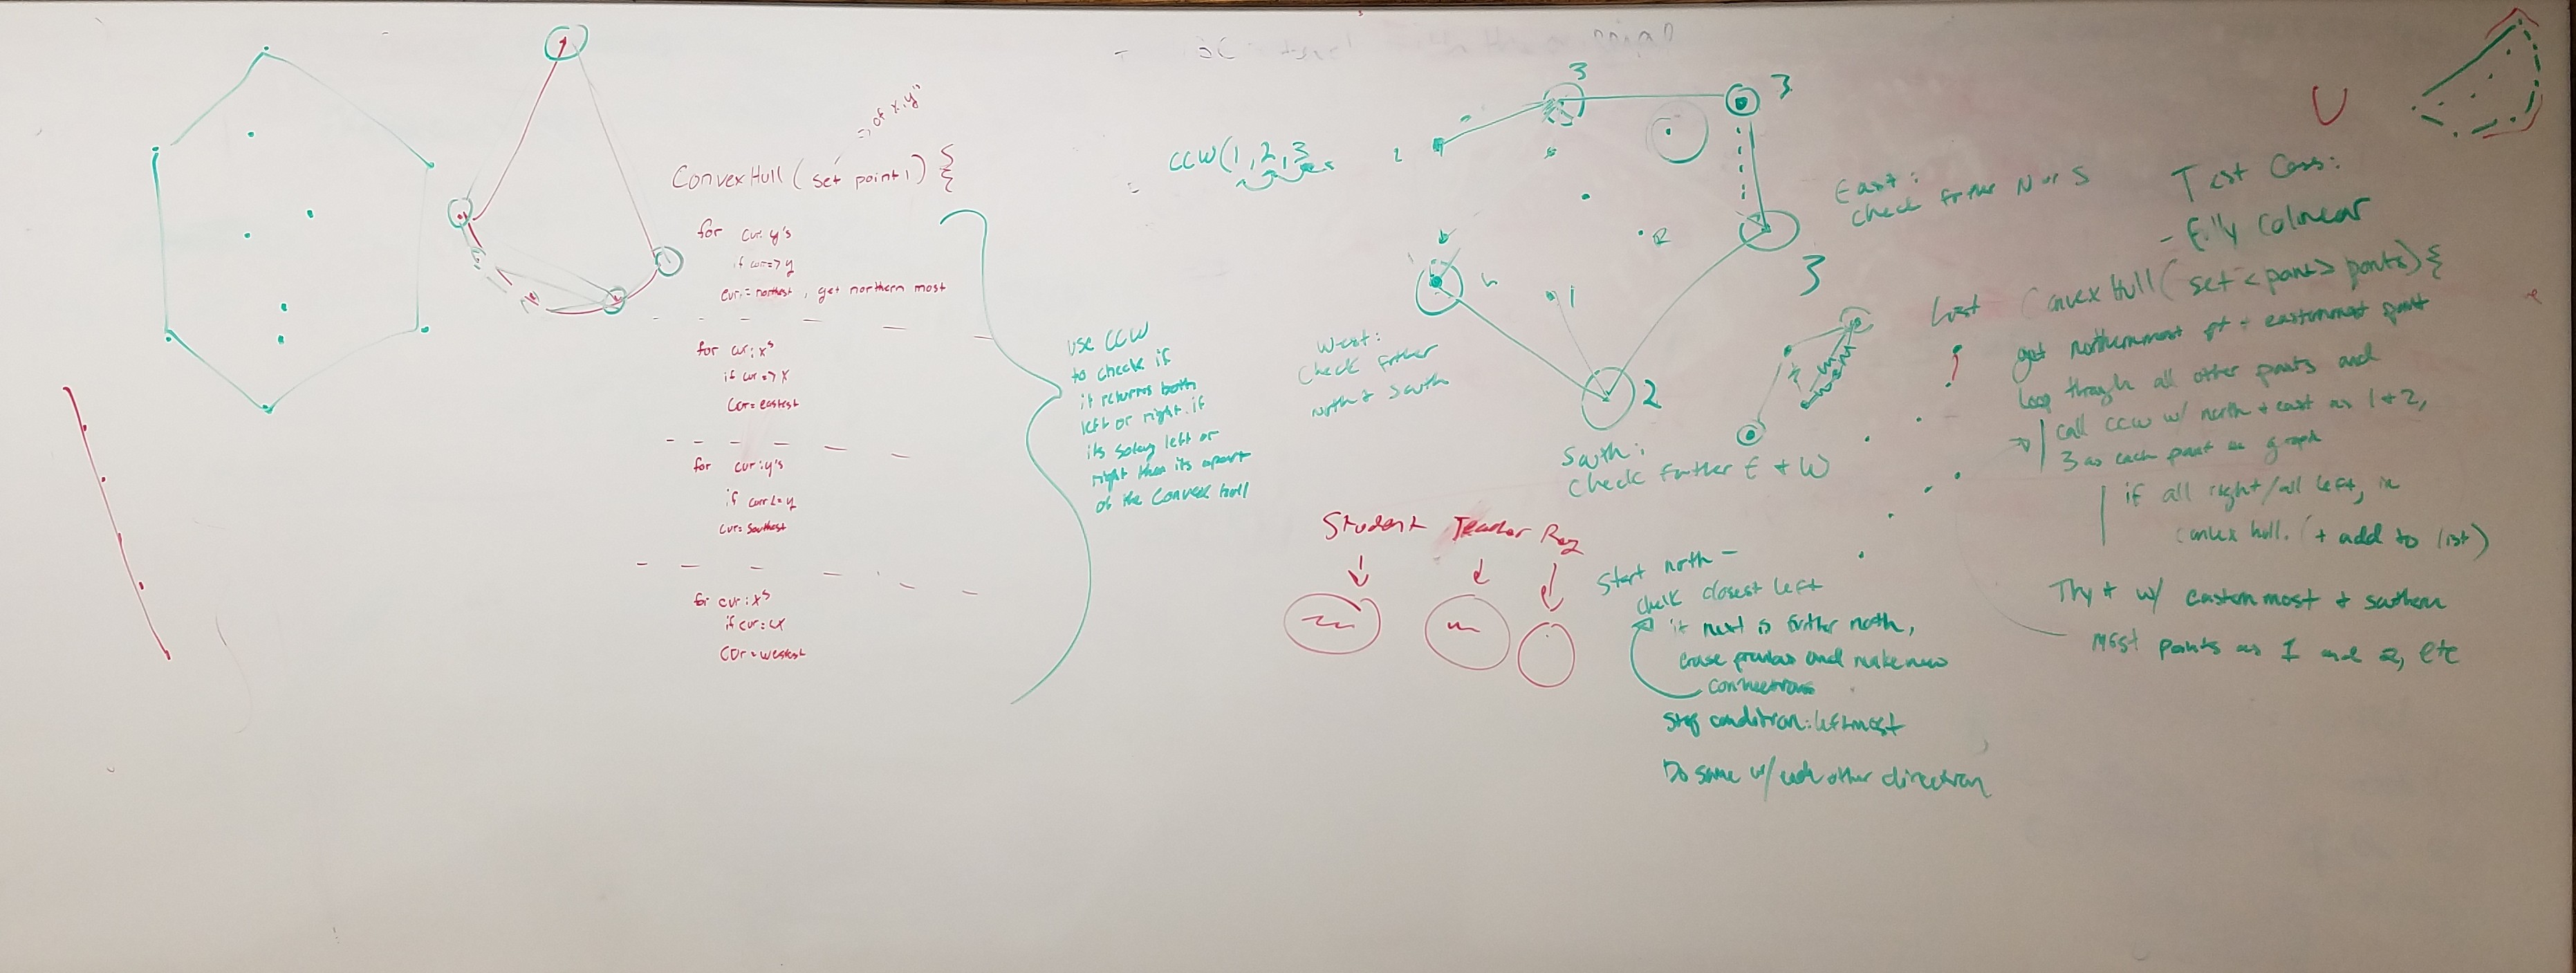 =, of x,y"
ConvexHull ( set point 1 ) {
for cur: y's
if cur => y
cur = northest, get northern most
for cur: x's
if cur => x
cur = eastest
for cur: y's
if curr <= y
cur = southest
for cur: x's
if cur = <x
cur = westest
use CCW
to check if
it returns both
left or right. if
its soley left or
right then its apart
of the Convex hull
CCW(1, 2, 3
3
3
3
2
1
West:
Check further
north + south
South:
Check further E + W
East:
Check further N or S
Student Teacher Reg
Start north -
check closest left
if next is further north,
erase previous and make new
connections
Stop condition: leftmost
Do same w/ each other direction
U
Test Cases:
- Fully Colinear
List ConvexHull( set <point> points) {
get northernmost pt + easternmost point
loop through all other points and
call CCW w/ north + east as 1 + 2,
3 as each point in graph
if all right/all left, in
convex hull. (+ add to list)
Try + w/ easternmost + southern
most points as 1 and 2, etc